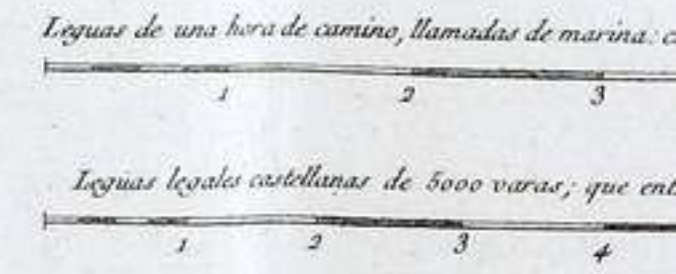 Leguas de una hora de camino, llamadas de marina: c
1 2 3
Leguas legales castellanas de 5000 varas; que ent
1 2 3 4